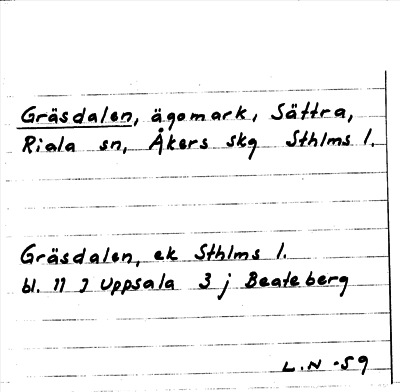 Gräsdalen, ägomark, Sättra,
Riala sn, Åkers skg Sthlms l.
Gräsdalen, ek Sthlms l.
bl. 11 J Uppsala 3 j Beateberg
L.N -59